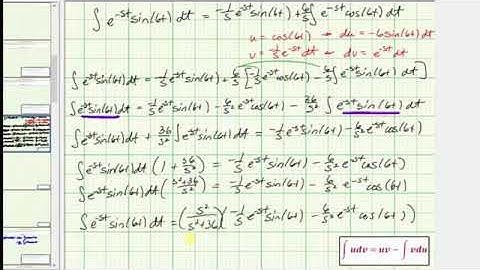 ∫ e^{-st} sin(6t) dt = -1/s e^{-st} sin(6t) + 6/s ∫ e^{-st} cos(6t) dt
u = cos(6t) → du = -6 sin(6t) dt
v = -1/s e^{-st} ← dv = e^{-st} dt
∫ e^{-st} sin(6t) dt = -1/s e^{-st} sin(6t) + 6/s [ -1/s e^{-st} cos(6t) - 6/s ∫ e^{-st} sin(6t) dt ]
∫ e^{-st} sin(6t) dt = -1/s e^{-st} sin(6t) - 6/s² e^{-st} cos(6t) - 36/s² ∫ e^{-st} sin(6t) dt
∫ e^{-st} sin(6t) dt + 36/s² ∫ e^{-st} sin(6t) dt = -1/s e^{-st} sin(6t) - 6/s² e^{-st} cos(6t)
∫ e^{-st} sin(6t) dt (1 + 36/s²) = -1/s e^{-st} sin(6t) - 6/s² e^{-st} cos(6t)
∫ e^{-st} sin(6t) dt ((s²+36)/s²) = -1/s e^{-st} sin(6t) - 6/s² e^{-st} cos(6t)
∫ e^{-st} sin(6t) dt = (s²/(s²+36)) (-1/s e^{-st} sin(6t) - 6/s² e^{-st} cos(6t))
∫ u dv = uv - ∫ v du